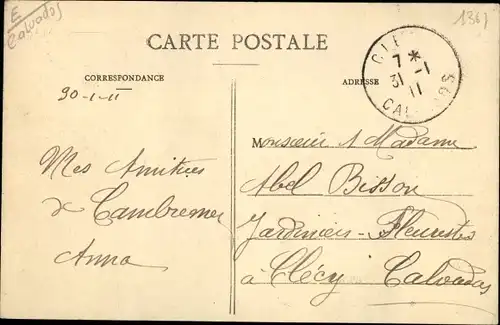 E
Calvados
136
CARTE POSTALE
CORRESPONDANCE
ADRESSE
CLE
7 *
31 -1
11
CALVADOS
30-1-11
Mes Amitiés
de Cambremer
Anna
Monsieur & Madame
Abel Bisson
Jardiniers-Fleuristes
à Clécy Calvados